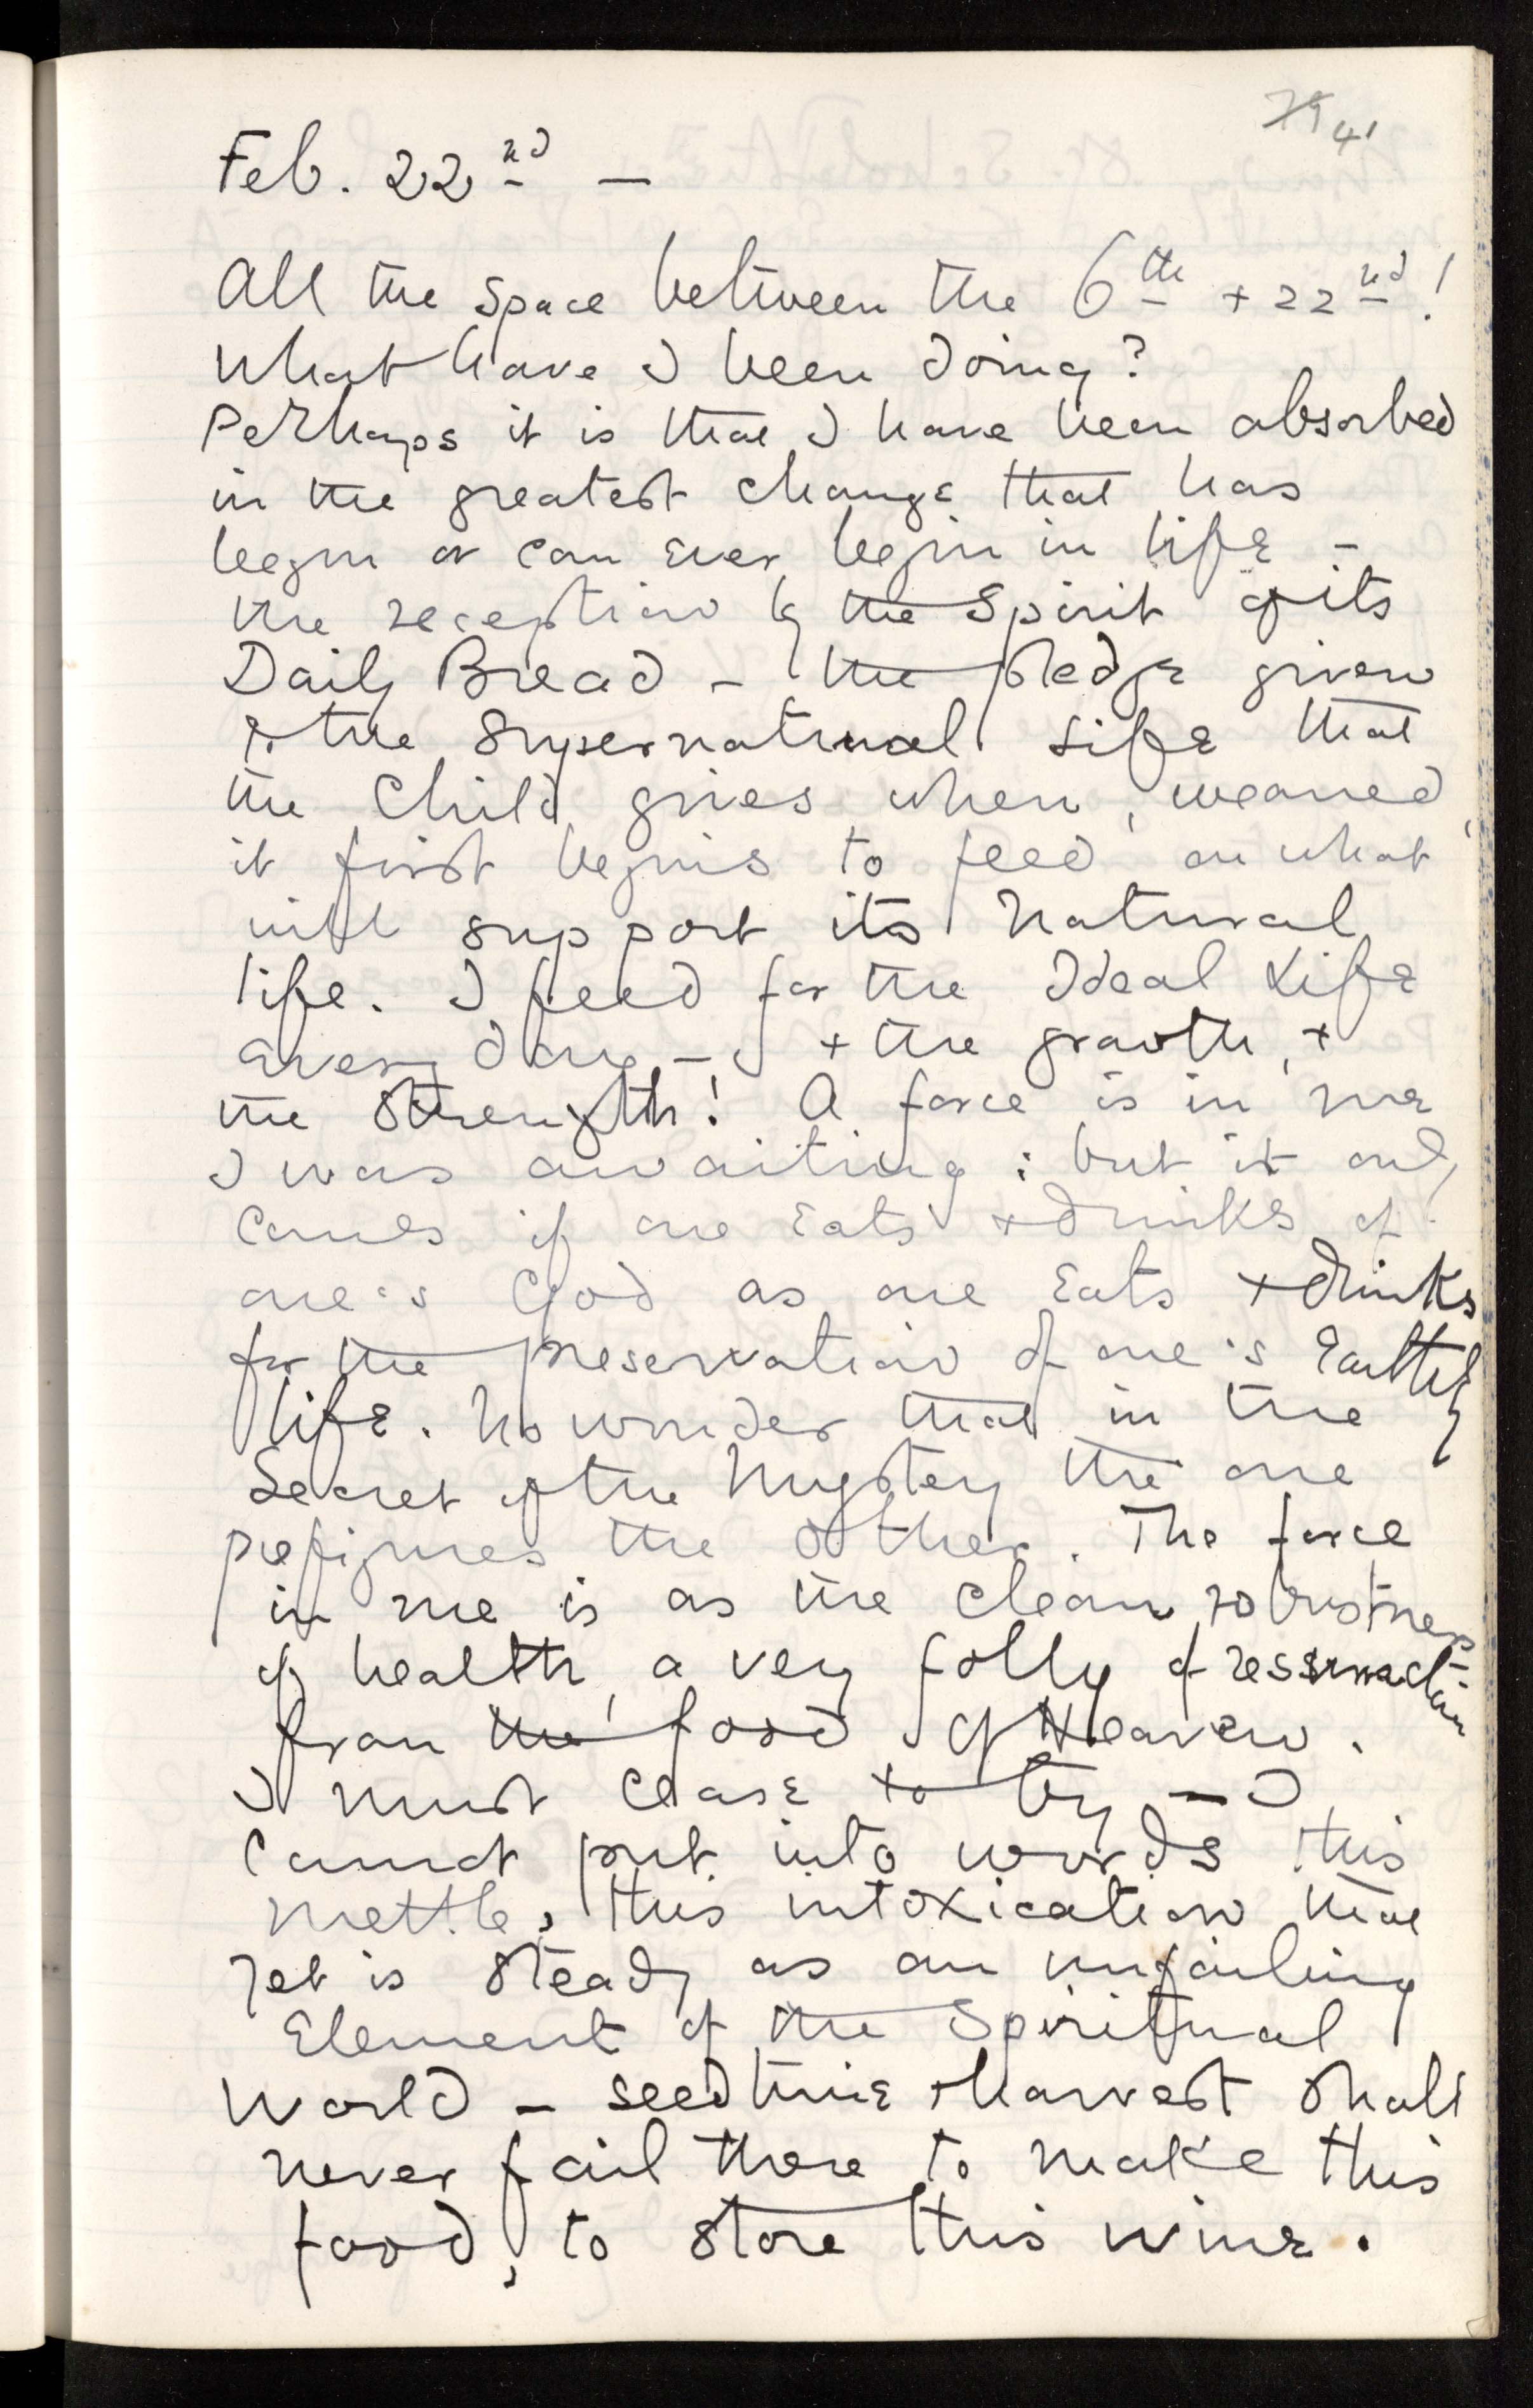 41
Feb. 22nd —
All the space between the 6th + 22nd!
What have I been doing?
Perhaps it is that I have been absorbed
in the greatest change that has
begun or can ever begin in life –
the reception by the Spirit of its
Daily Bread – the pledge given
to the Supernatural Life that
the Child gives when, weaned,
it first begins to feed on what
will support its natural
life. I feed for the Ideal Life
every day – + the growth, +
the strength! A force is in me
I was awaiting : but it only
comes if one eats + drinks of
one's God as one eats + drinks
for the preservation of one's earthly
life. No wonder that in the
Secret of the Mystery the one
prefigures the other. The force
in me is as the clean robustness
of health, a very folly of resurrection
from the food of Heaven.
I must cease to try – I
cannot put into words this
mettle, this intoxication that
yet is steady as an unfailing
Element of the Spiritual
World – seedtime + harvest shall
never fail there to make this
food, to store this wine.